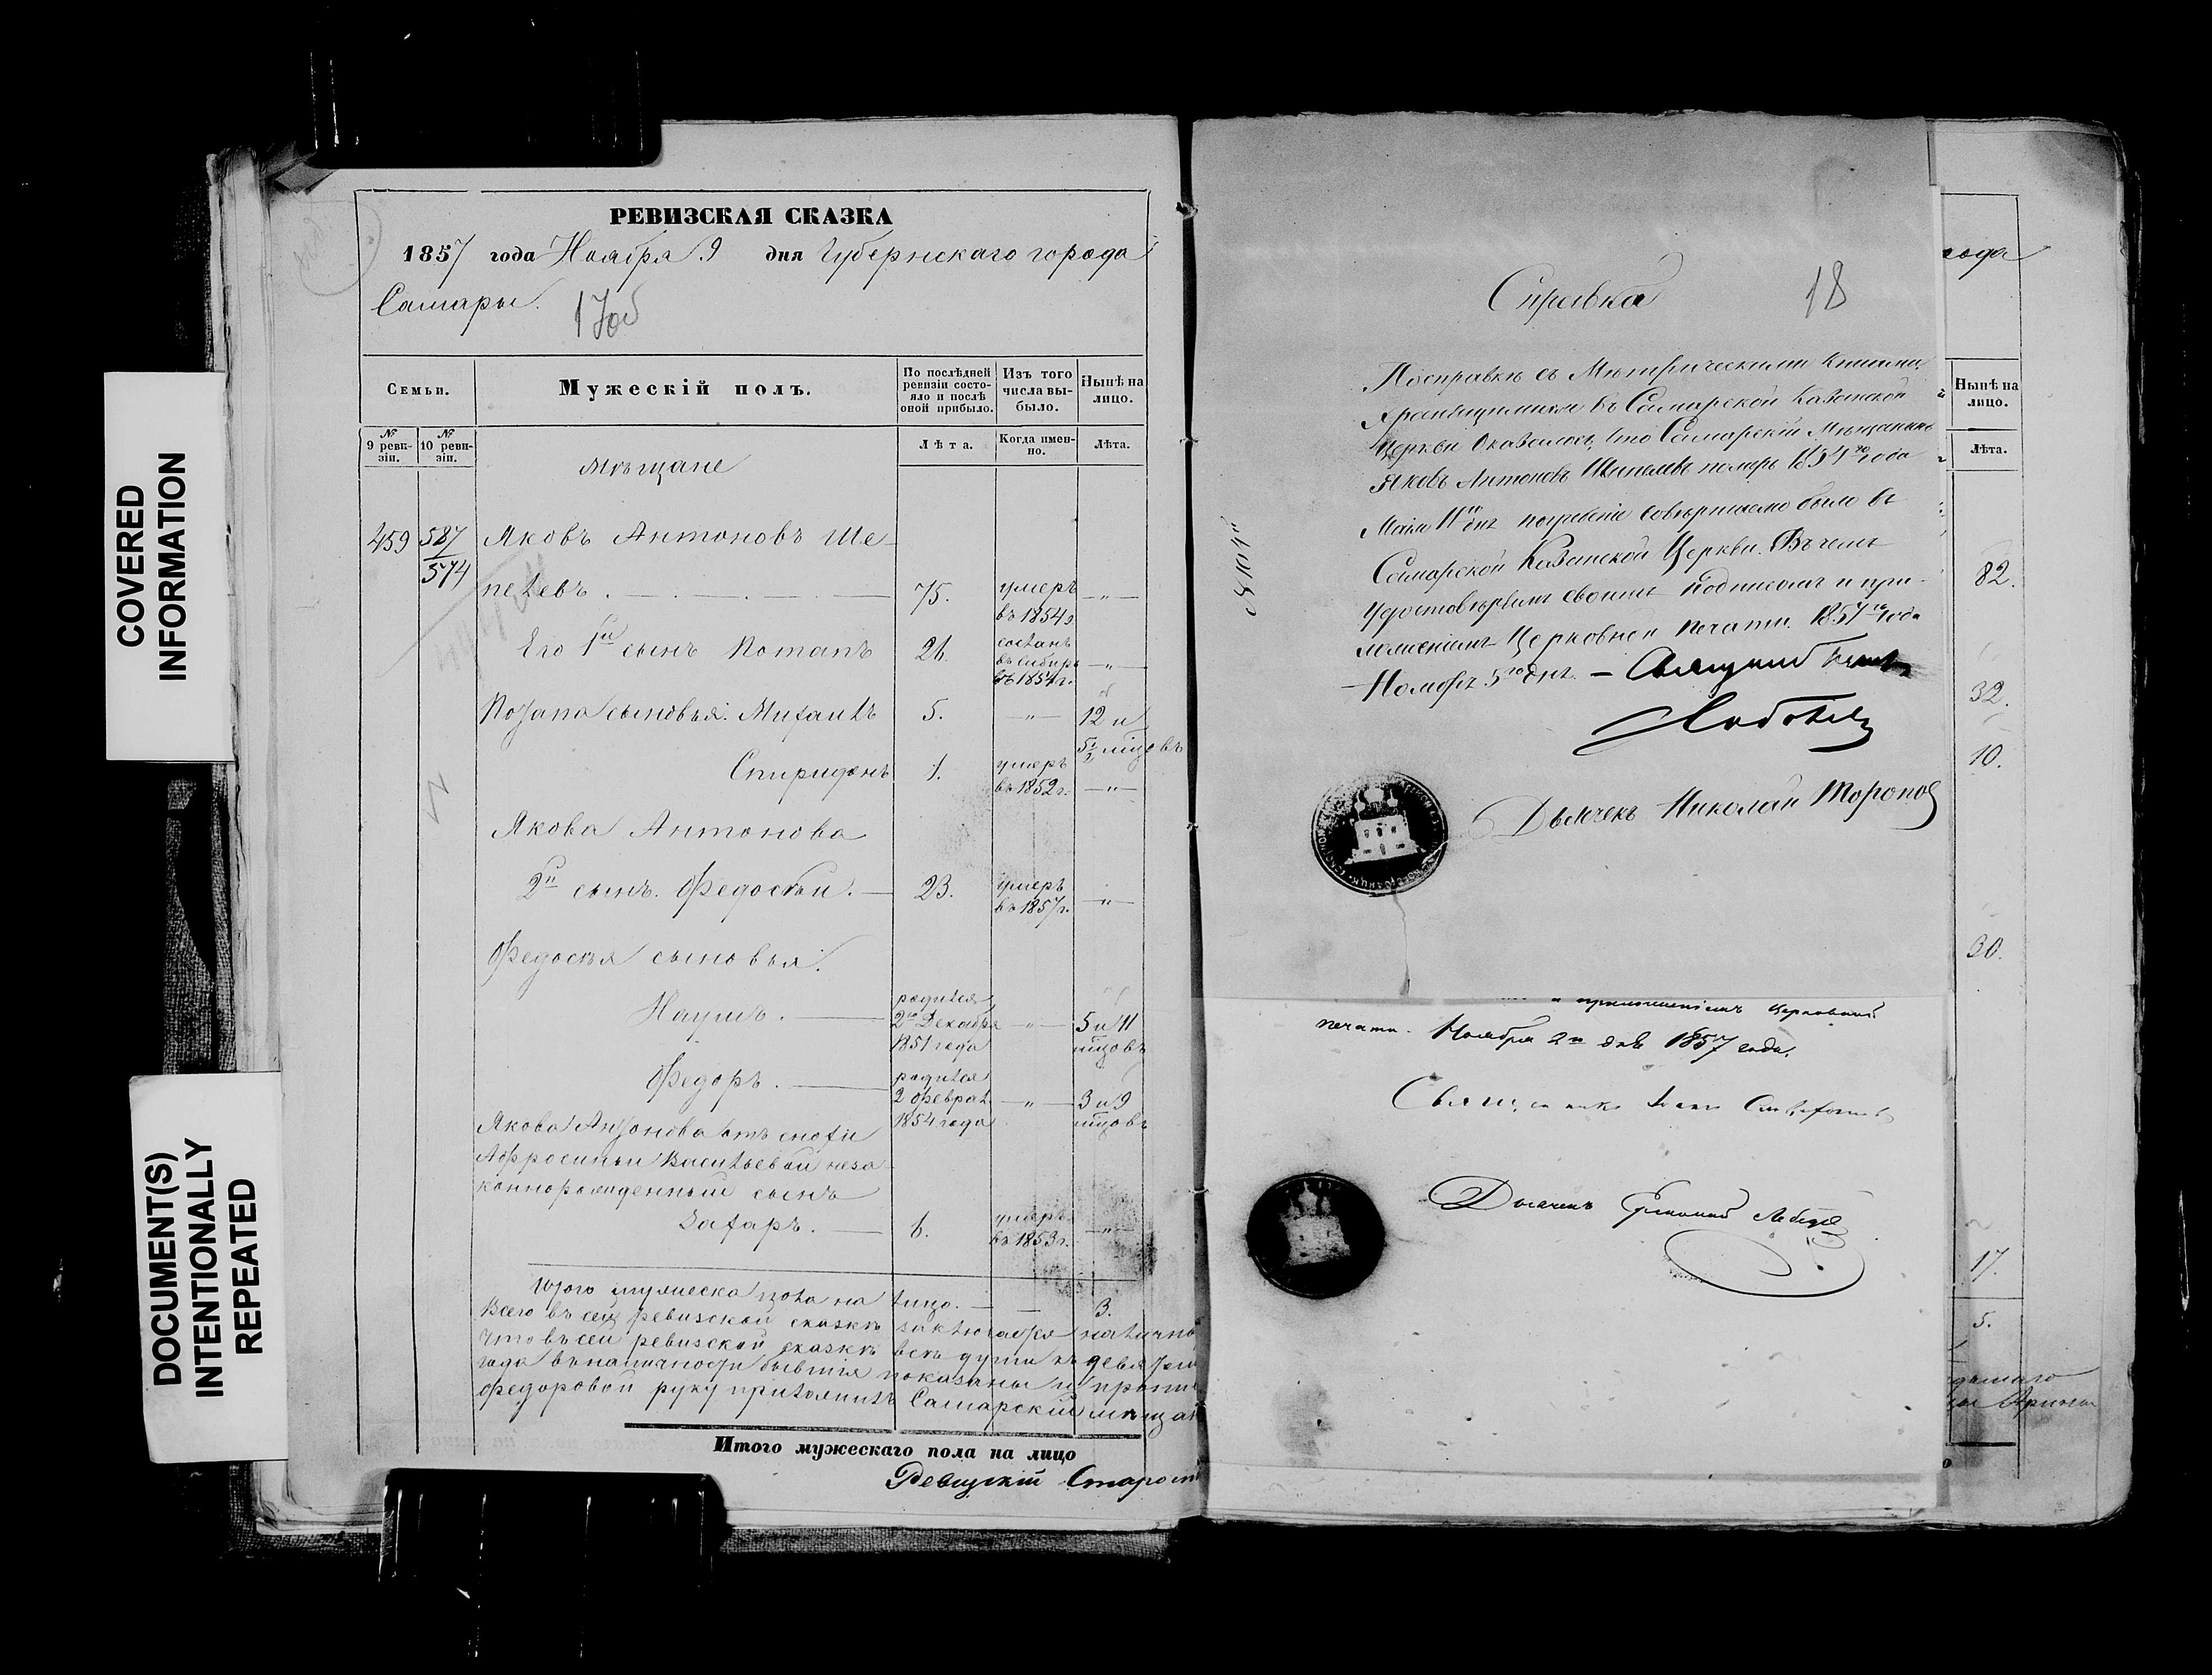 COVERED
INFORMATION
DOCUMENT(S)
INTENTIONALLY
REPEATED
РЕВИЗСКАЯ СКАЗКА
1857 года Ноября 9 дня Губернскаго города
Самары.
17об
Семьи.
Мужескій полъ.
По послѣдней ревизіи состояло и послѣ оной прибыло.
Изъ того числа выбыло.
Нынѣ на лицо.
№ 9 ревизіи.
№ 10 ревизіи.
Лѣта.
Когда именно.
Лѣта.
Мѣщане
459 587 Яковъ Антоновъ Ше-
574
пелевъ. 75. умеръ въ 1854г. — " —
Его 1й сынъ Потапъ 26. сосланъ въ Сибирь въ 1854г. — " —
Потапа сыновья: Михаилъ 5. — " — 12 и 5½ мѣцовъ
Спиридонъ 1. умеръ въ 1852г. — " —
Якова Антонова
2й сынъ. Федосѣй. — 23. умеръ въ 1857г. — " —
Федосѣя сыновья:
Наумъ. — родился 2го Декабря 1851 года — " — 5 и 11 мѣцовъ
Федоръ. — родился 2 Феврал. 1854 года — " — 3 и 9 мѣцовъ
Якова Антонова отъ снохи
Афросиньи Васильевой неза-
коннорожденный сынъ
Захаръ. — 6. умеръ въ 1853г. — " —
Итого мужеска пола на лицо. — — 3.
Всего въ сей ревизской сказкѣ заключается налично
Что въ сей ревизской сказкѣ всѣ души къ девятому
года въ наличности бывшія показаны и
Федоровой руку приложилъ Самарскій мѣщан
Итого мужескаго пола на лицо
Ревизскій Старост
Справка
18
По справкѣ съ Метрическими книгами,
хранящимися въ Самарской Казанской
Церкви Оказалось, что Самарскій Мѣщанинъ
Яковъ Антоновъ Шепелевъ померъ 1854го года
Маія 11го дня погребеніе совершаемо было въ
Самарской Казанской Церкви. Въ чемъ
удостовѣряемъ своимъ подписомъ и при-
ложеніемъ Церковной печати. 1857го года
Ноября 5го дня. —
Дьячекъ Николай Торопов
приложеніемъ церковной
печати. Ноября 2го дня 1857 года.
Священникъ
Дьячекъ
года
Нынѣ на лицо.
Лѣта.
82.
32.
10.
30.
17.
5.